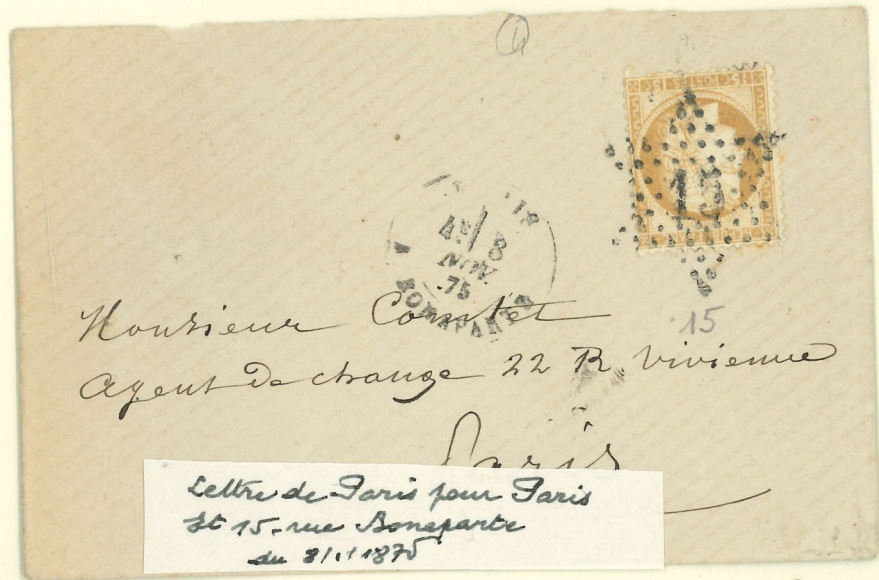 15
4E/ 8
NOV.
75
R. BONAPARTE
15
Monsieur Comtet
Agent De change 22 R. Vivienne
Paris
Lettre de Paris pour Paris
Et 15 - rue Bonaparte
du 8/11/1875